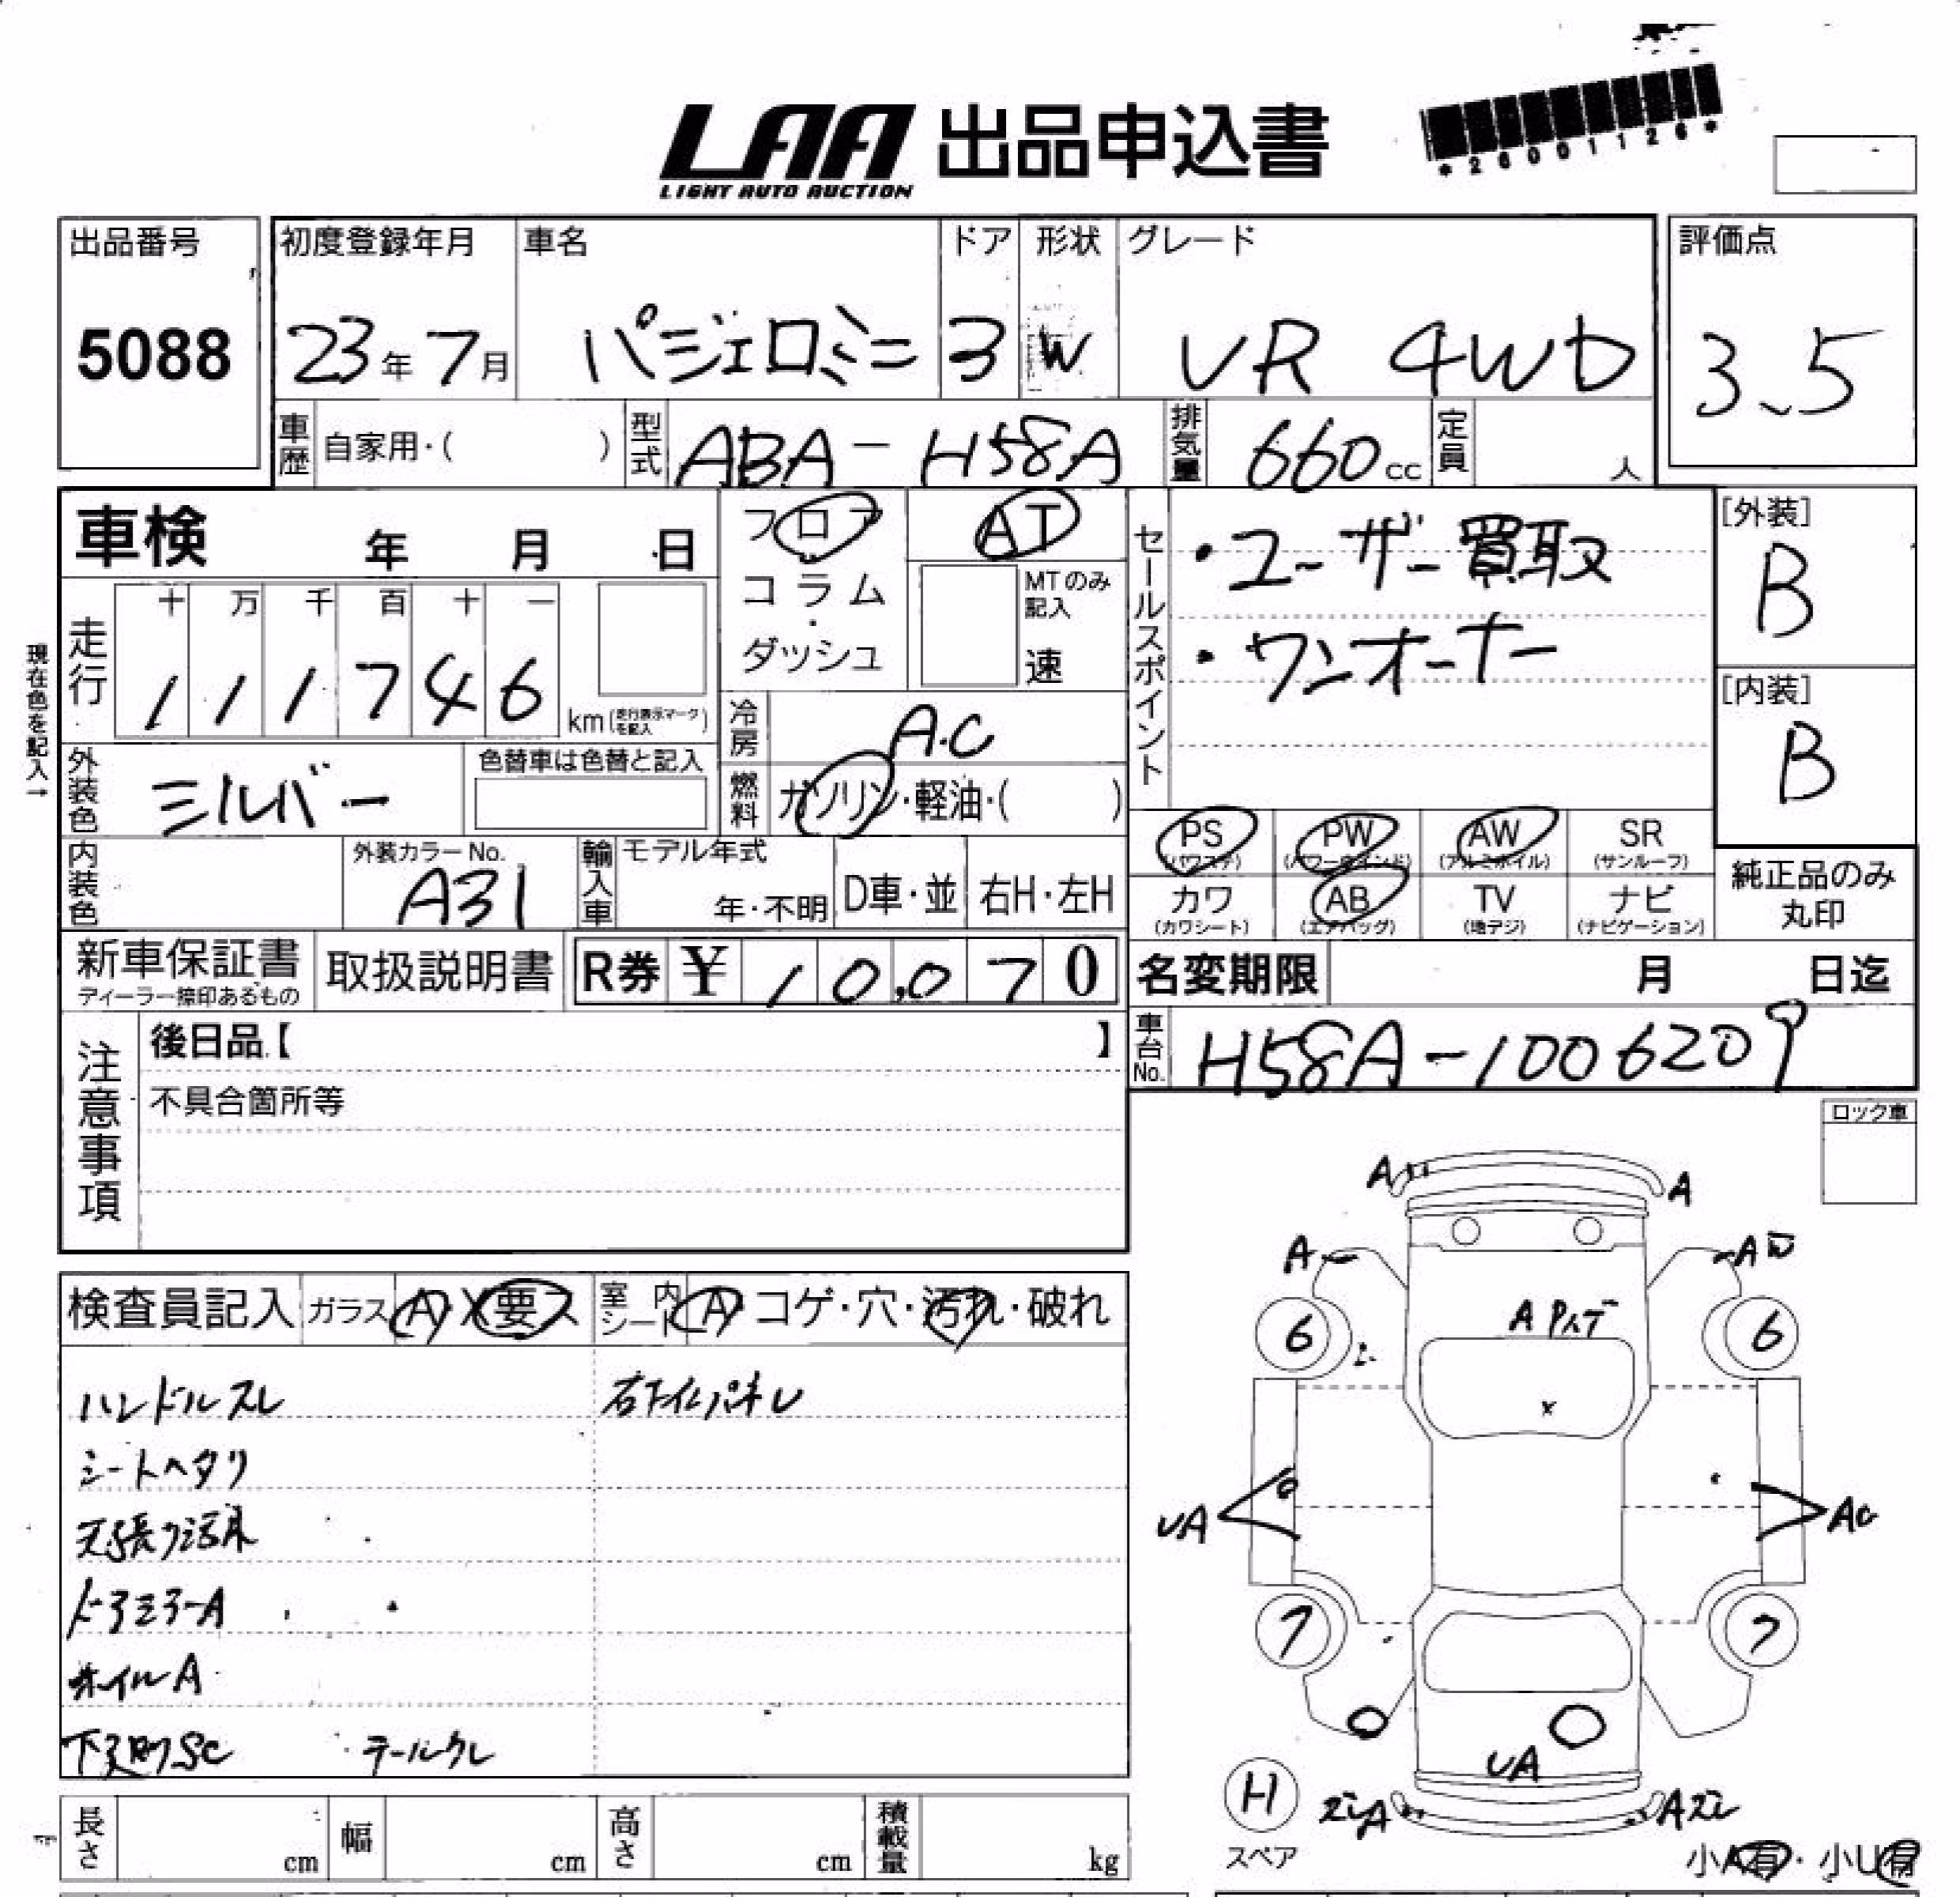 LAA 出品申込書
LIGHT AUTO AUCTION
*26001126*
出品番号 初度登録年月 車名 ドア 形状 グレード 評価点
5088 23年 7月 パジェロミニ 3 W VR 4WD 3.5
車歴 自家用・( ) 型式 ABA-H58A 排気量 660cc 定員 人
車検 年 月 日 フロア AT セールスポイント ・ユーザー買取 [外装]
B
コラム・ MTのみ記入 ・ワンオーナー
ダッシュ 速
走行 十 万 千 百 十 一
1 1 1 7 4 6 km(走行表示マークを記入) [内装]
B
現在色を記入→
冷房 A.C
外装色 シルバー 色替車は色替と記入 燃料 ガソリン・軽油・( )
PS (パワステ) PW (パワーウインド) AW (アルミホイル) SR (サンルーフ)
内装色 外装カラーNo. A31 輸入車 モデル年式 年・不明 D車・並 右H・左H
カワ (カワシート) AB (エアバッグ) TV (地デジ) ナビ (ナビゲーション) 純正品のみ丸印
新車保証書 ディーラー捺印あるもの 取扱説明書 R券 ¥ 10,070 名変期限 月 日迄
注意事項 後日品【 】 車台No. H58A-1006209
不具合箇所等
ロック車
A A
A A
検査員記入 ガラス A・X要ス 室内シート A・コゲ・穴・汚れ・破れ
6 6
ハンドルスレ
x
シートヘタリ
天張り汚れ
UA
ドアミラーA
7 7
ホイルA
下廻りSC ・テールクレ
UA
H
スペア
長さ cm 幅 cm 高さ cm 積載量 kg
小A有・小U有